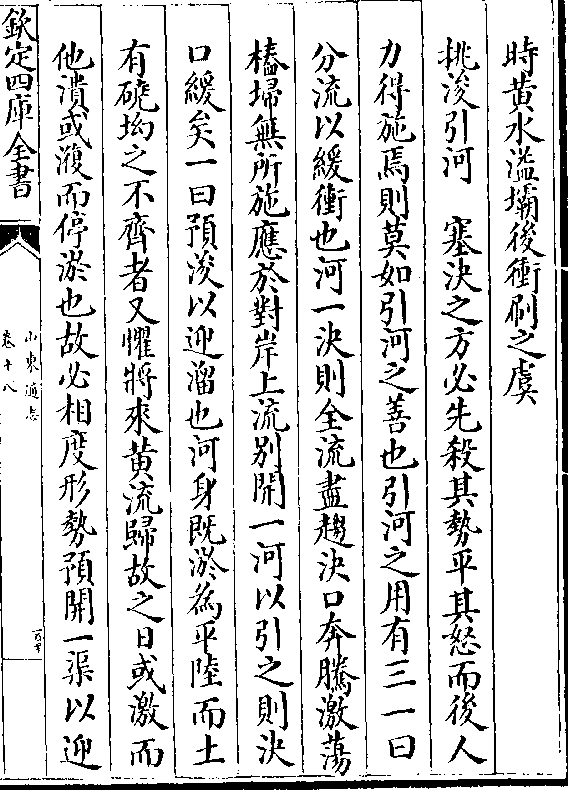 時黃水溢壩後衝刷之虞
挑浚引河　塞決之方必先殺其勢平其怒而後人
力得施焉則莫如引河之善也引河之用有三一曰
分流以緩衝也河一決則全流盡趨決口奔騰激蕩
樁埽無所施應於對岸上流別開一河以引之則決
口緩矣一曰預浚以迎溜也河身既淤為平陸而土
有磽坳之不齊者又懼將來黃流歸故之日或激而
他潰或洑而停淤也故必相度形勢預開一渠以迎
欽定四庫全書
山東通志
卷十八